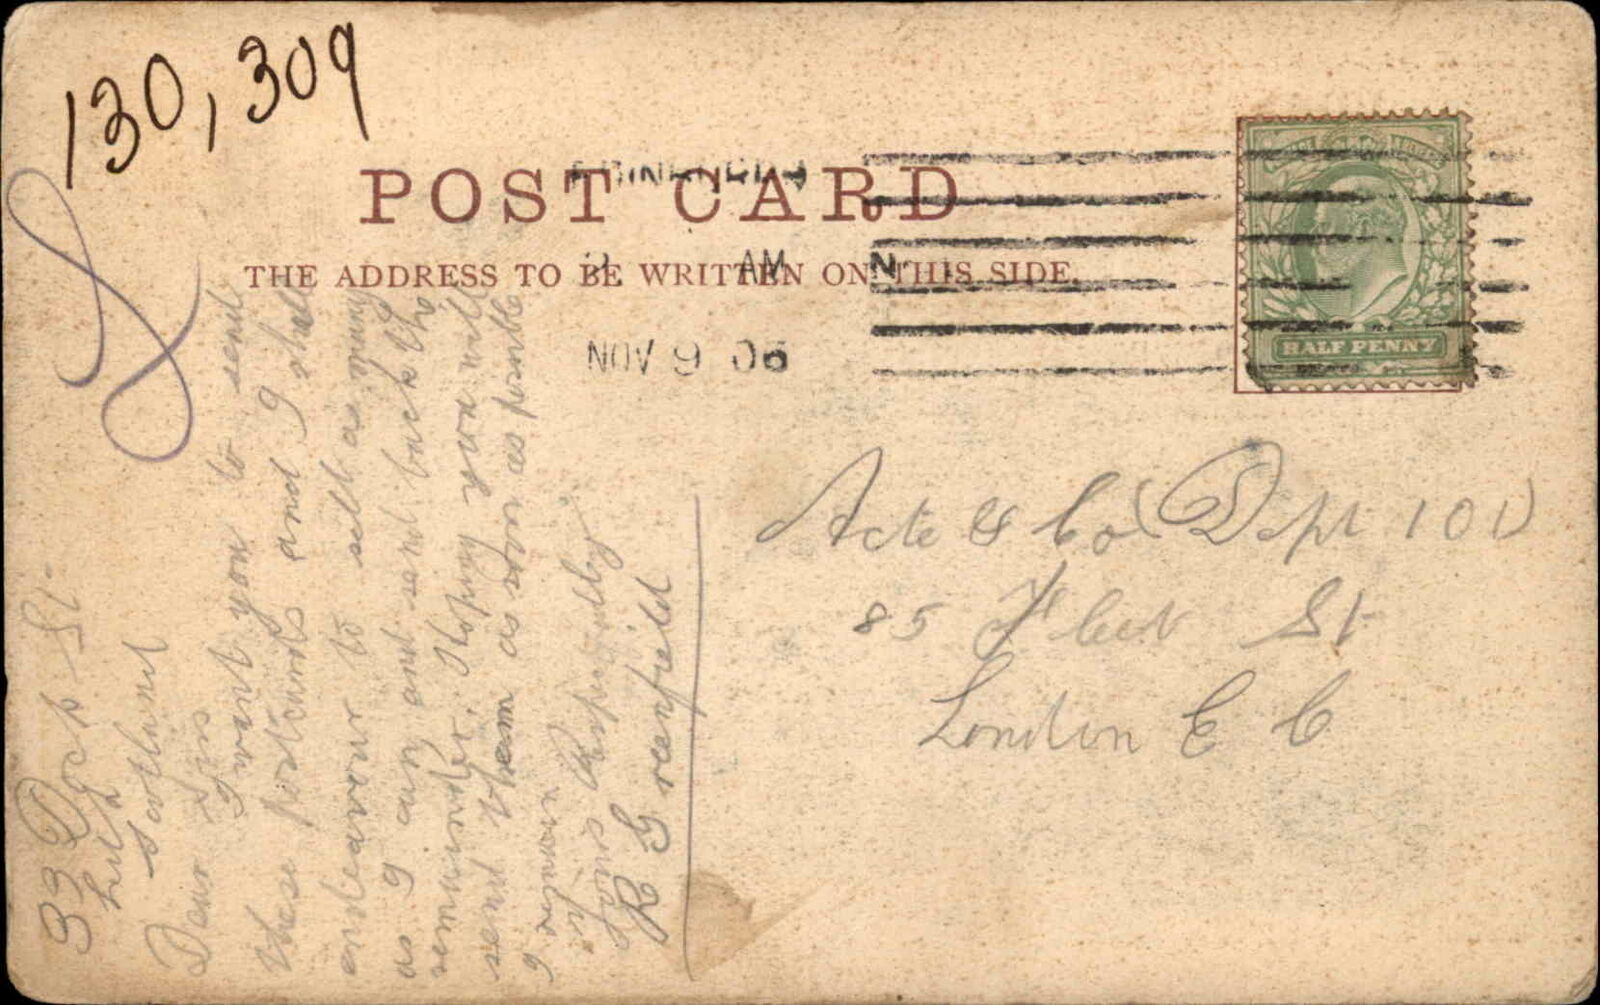 130,309
POST CARD
THE ADDRESS TO BE WRITTEN ON THIS SIDE.
EDINBURGH
AM
N.B.
NOV 9 06
HALF PENNY
Acte & Co (Dept 101)
85 Fleet St
London E C
33 Dock St
Leith
Scotland
Dear Sir
I want you to send
these postcards and I shall
endeavour to sell as many
as I can and send back the
remainder. Hoping you will
send them as soon as possible
I remain
Yours Respectfully
R Greenfield